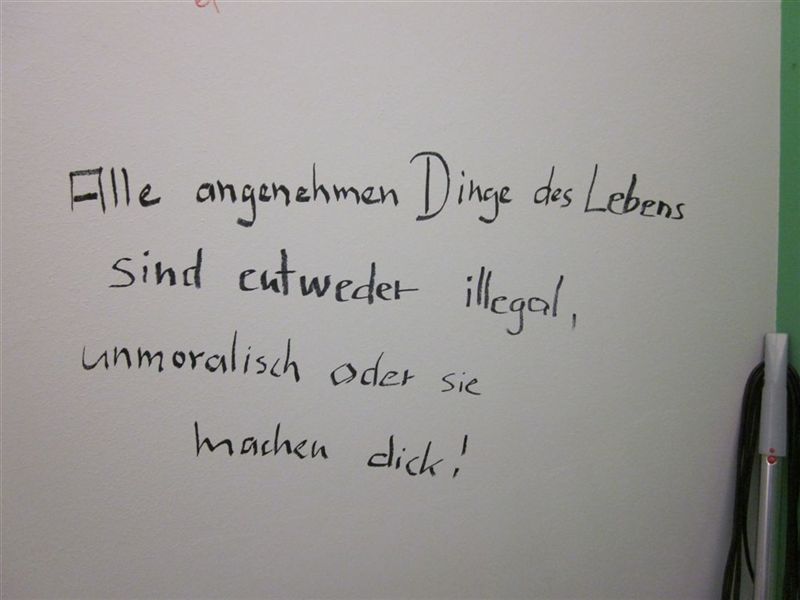 Alle angenehmen Dinge des Lebens
sind entweder illegal,
unmoralisch oder sie
machen dick!